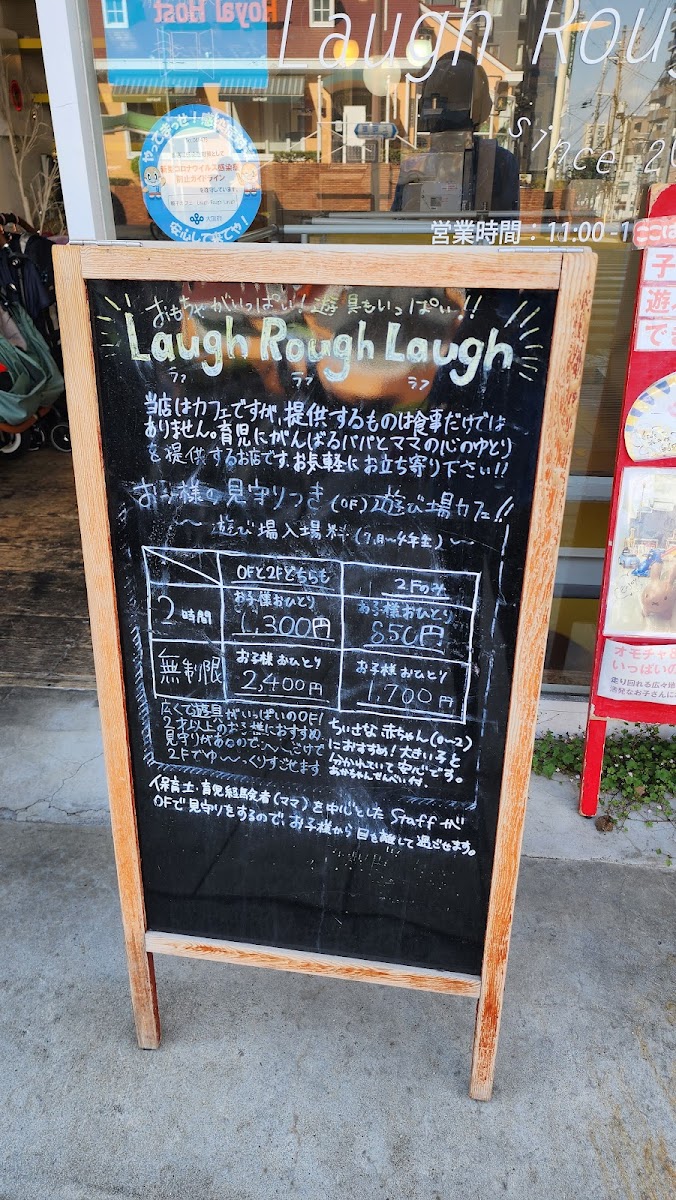 Royal Host
Laugh Roug
since 2
営業時間：11:00-1
やってきっせ！
新型コロナウイルス感染症
防止ガイドライン
大阪府
安心して来てや！
ここは
子
遊べ
でき
オモチャ&
いっぱいの
走り回れる広々
活発なお子さんに
おもちゃがいっぱい！遊具もいっぱい！！
Laugh Rough Laugh
ラフ ラフ ラフ
当店はカフェですが、提供するものは食事だけでは
ありません。育児にがんばるパパとママの心のゆとり
を提供するお店です。お気軽にお立ち寄り下さい!!
お子様の見守りつき(OF)遊び場カフェ!!
〜遊び場入場料(7月〜4年生)〜
OFと2Fどちらも 2Fのみ
2時間 お子様おひとり 1,300円 お子様おひとり 850円
無制限 お子様おひとり 2,400円 お子様おひとり 1,700円
広くて遊具がいっぱいのOF!
2才以上のお子様におすすめ
見守りがあるので〜〜
2Fでゆ〜〜っくりすごせます
ちいさな赤ちゃん(0〜2)
におすすめ！大きい子と
分かれていて安心です。
保育士・育児経験者(ママ)を中心としたStaffが
OFで見守りをするので、お子様から目を離して過ごせます。